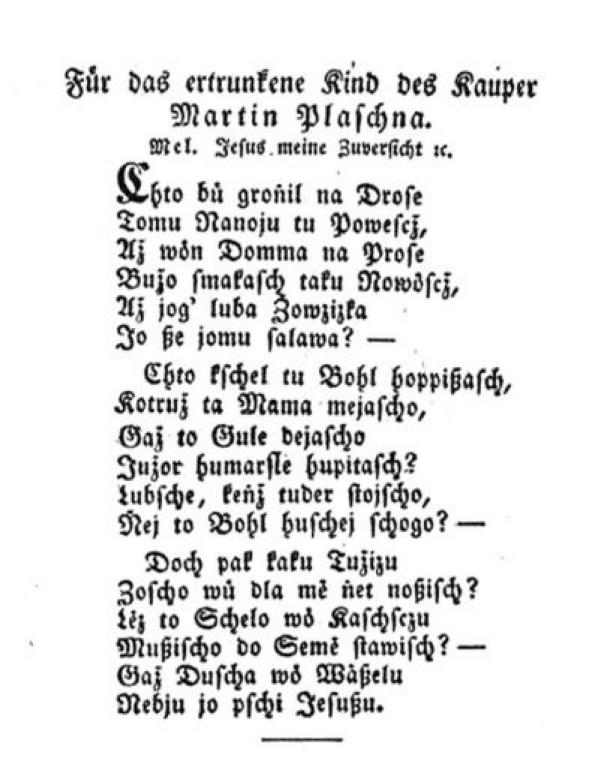 Für das ertrunkene Kind des Kauper
Martin Plaschna.
Mel. Jesus meine Zuversicht ꝛc.
Chto bů groṅil na Drose
Tomu Nanoju tu Powescž,
Až wón Domma na Prose
Bužo smakasch taku Nowóscž,
Až jog' luba Žowzizka
Jo ße jomu salawa? —
Chto kschel tu Bohl hoppißasch,
Kotruž ta Mama mejascho,
Gaž to Gule dejascho
Južor humarsle hupitasch?
Lubsche, keṅž tuder stojscho,
Ṅej to Bohl huschej schogo? —
Doch pak kaku Tužizu
Zoscho wů dla mė ṅet noßisch?
Lėz to Schelo wó Kaschsczu
Mußischo do Semė stawisch? —
Gaž Duscha wó Wàßelu
Nebju jo pschi Jesußu.